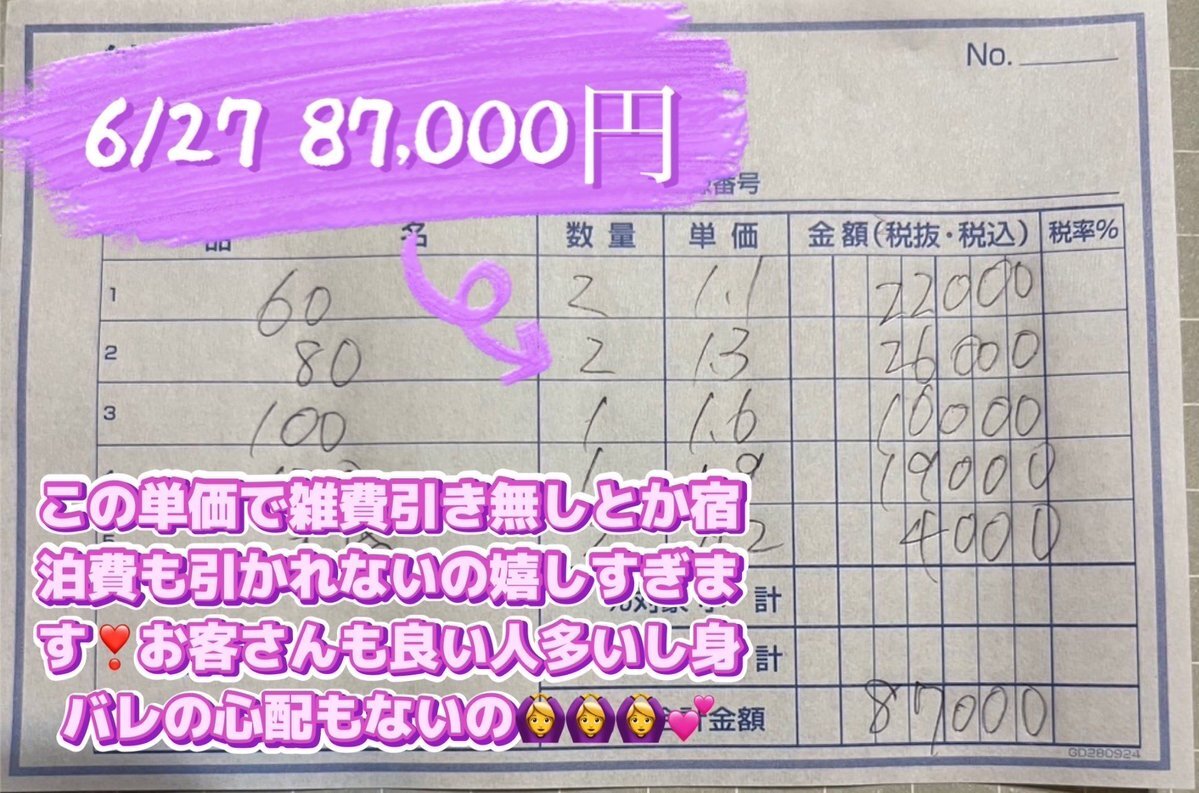 No.
6/27 87,000円
番号
品 名 数量 単価 金額(税抜・税込) 税率%
1 60 2 1.1 22000
2 80 2 1.3 26000
3 100 1 1.6 16000
19000
4000
この単価で雑費引き無しとか宿
泊費も引かれないの嬉しすぎま
す❣️お客さんも良い人多いし身
バレの心配もないの🙆‍♀️🙆‍♀️🙆‍♀️💕
計
計
計金額 87000
GD280924